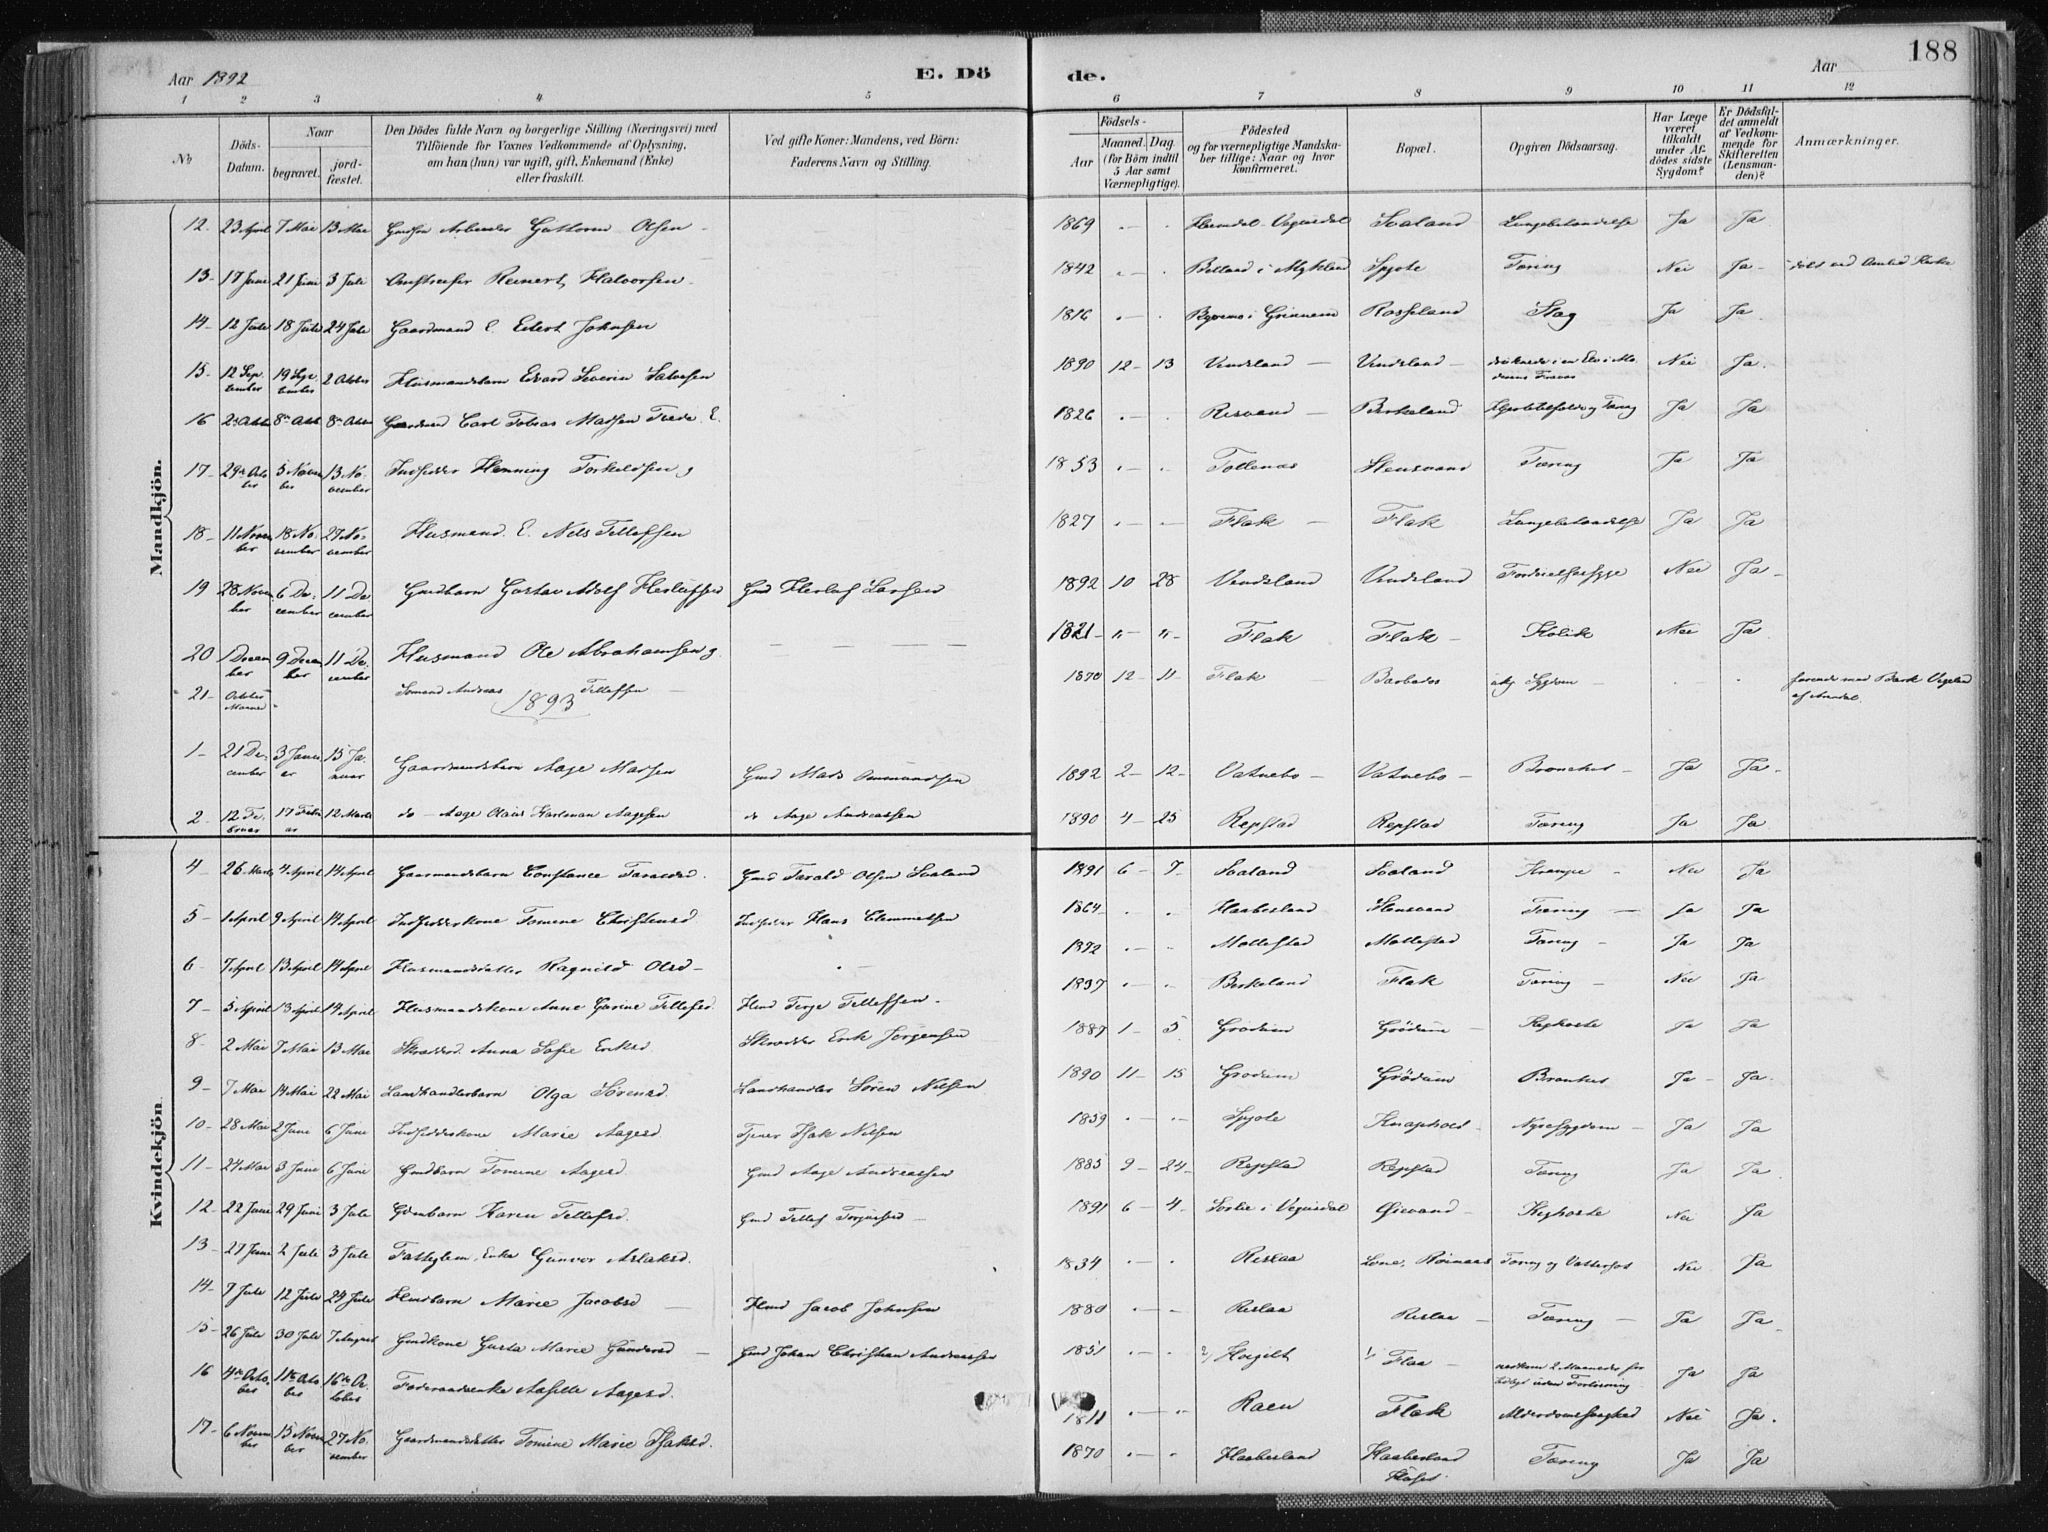 188
Aar 1892 E. Dö de. Aar
1 2 3 4 5 6 7 8 9 10 11 12
No
Döds-Datum.
Naar
begravet.
jord-fæstet.
Den Dödes fulde Navn og borgerlige Stilling (Næringsvei) med
Tilföiende for Voxnes Vedkommende af Oplysning,
om han (hun) var ugift, gift, Enkemand (Enke)
eller fraskilt.
Ved gifte Koner: Mandens, ved Börn:
Faderens Navn og Stilling.
Födsels-
Aar
Maaned. Dag.
(for Börn indtil
5 Aar samt
Værnepligtige).
Födested
og for værnepligtige Mandska-
ber tillige: Naar og hvor
konfirmeret.
Bopæl.
Opgiven Dödsaarsag.
Har Læge
været
tilkaldt
under Af-
dödes sidste
Sygdom?
Er Dödsfal-
det anmeldt
af Vedkom-
mende for
Skifteretten
(Lensman-
den)?
Anmærkninger.
Mandkjön.
12. 23 April 7 Mai 13 Mai Guttorm Olsen 1869 Vegusdal Saaland Lungebetændelse Ja Ja
13 17 Juni 21 Juni 3 Juli Reinert Halvorsen 1842 Belland i Mykland Spjote Tæring Nei Ja
14 12 Juli 18 Juli 24 Juli Gaardmand E. Eilert Johnsen 1816 Rosseland Slag Ja Ja
15 12 September 19 September 2 October Husmandsbarn Edvard Severin Salvesen 1890 12 13 Vendsland Vendsland Nei Ja
16 8de October Gaardmand Carl Tobias Madsen E. 1826 Risvand Birkeland Ja Ja
17 29de October 5 November 13 November Indsidder Henning Torkeldsen g 1853 Tollenæs Hensvand Tæring Ja Ja
18 11 November 18 November 27 November Husmand E. Nils Tellefsen 1827 Flak Flak Lungebetændelse Ja Ja
19 28 November 6 December 11 December Gmdbarn Gustav Adolf Herlufsen Gmd Herluf Larsen 1892 10 28 Vendsland Vendsland Nei Ja
20 1 December 9 December 11 December Husmand Ole Abrahamsen g. 1821 Flak Flak Kolik Nei Ja
21 October Maaned Sömand Andreas Tellefsen 1870 12 11 Flak Barbados forende med Bark Vegeland af Arendal.
1893
1 21 December 3 Januar 15 Januar Gaardmandsbarn Aage Madsen Gmd Mads Ommundsen 1892 2 12 Vatnebo Vatnebo Bronchit Ja Ja
2 12 Februar 17 Februar 12 Marts do Aage Olaus Hartman Aagesen do Aage Andreassen 1890 4 25 Repstad Repstad Tæring Ja Ja
Kvindekjön.
4 26 Marts 4 April 14 April Gaarmandsbarn Constance Taraldsd. Gmd Tarald Olsen Saaland 1891 6 7 Saaland Saaland Krampe Nei Ja
5 1 April 9 April 14 April Indsidderskone Tomine Christensd. Indsidder Hans Clemmetsen 1864 Haabesland Hensvand Tæring Ja Ja
6 7 April 13 April 14 April Husmandsdatter Ragnild Olsd 1872 Mollestad Mollestad Tæring Ja Ja
7 5 April 13 April 14 April Husmandskone Anne Gurine Tellefsd. Hmd Terje Tellefsen 1837 Birkeland Flak Tæring Nei Ja
8 2 Mai 7 Mai 13 Mai Skrædderd. Anna Sofie Eriksd. Skrædder Erik Jörgensen 1887 1 5 Grödum Grödum Kighoste Ja Ja
9 7 Mai 14 Mai 22 Mai Landhandlerbarn Olga Sörensd. Landhandler Sören Nilsen 1890 11 15 Grödum Grödum Bronkit Ja Ja
10 28 Mai 2 Juni 6 Juni Indsidderskone Marie Aagesd. Isak Nilsen 1859 Spjote Knaphold Nyresygdom Ja Ja
11 24 Mai 3 Juni 6 Juni Gmdbarn Tomine Aagesd. Gmd Aage Andreassen 1885 9 24 Repstad Repstad Tæring Ja Ja
12 22 Juni 29 Juni 3 Juli Gdmbarn Karen Tellefsd. Gmd Tellef 1891 6 4 Vegusdal Öievand Kighoste Nei Ja
13 27 Juni 2 Juli 3 Juli Fattiglem, Enke Gunvor Aslaksd. 1834 Rislaa Nei Ja
14 7 Juli 12 Juli 24 Juli Hmdbarn Marie Jacobsd Hmd Jacob Johnsen 1880 Rislaa Rislaa Tæring Ja Ja
15 26 Juli 30 Juli 7 August Gmdkone Gusta Marie Gundersd Gmd Johan Christian Andreassen 1851 Flaa Ja Ja
16 4de October 11te October 16de October Föderaadsenke Aasille Aagesd. 1811 Raen Flak Alderdomssvaghed Nei Ja
17 6 November 15 November 27 November Gaardmandsdatter Tomine Marie Isaksd. 1870 Haabesland Haabesland Tæring Ja Ja